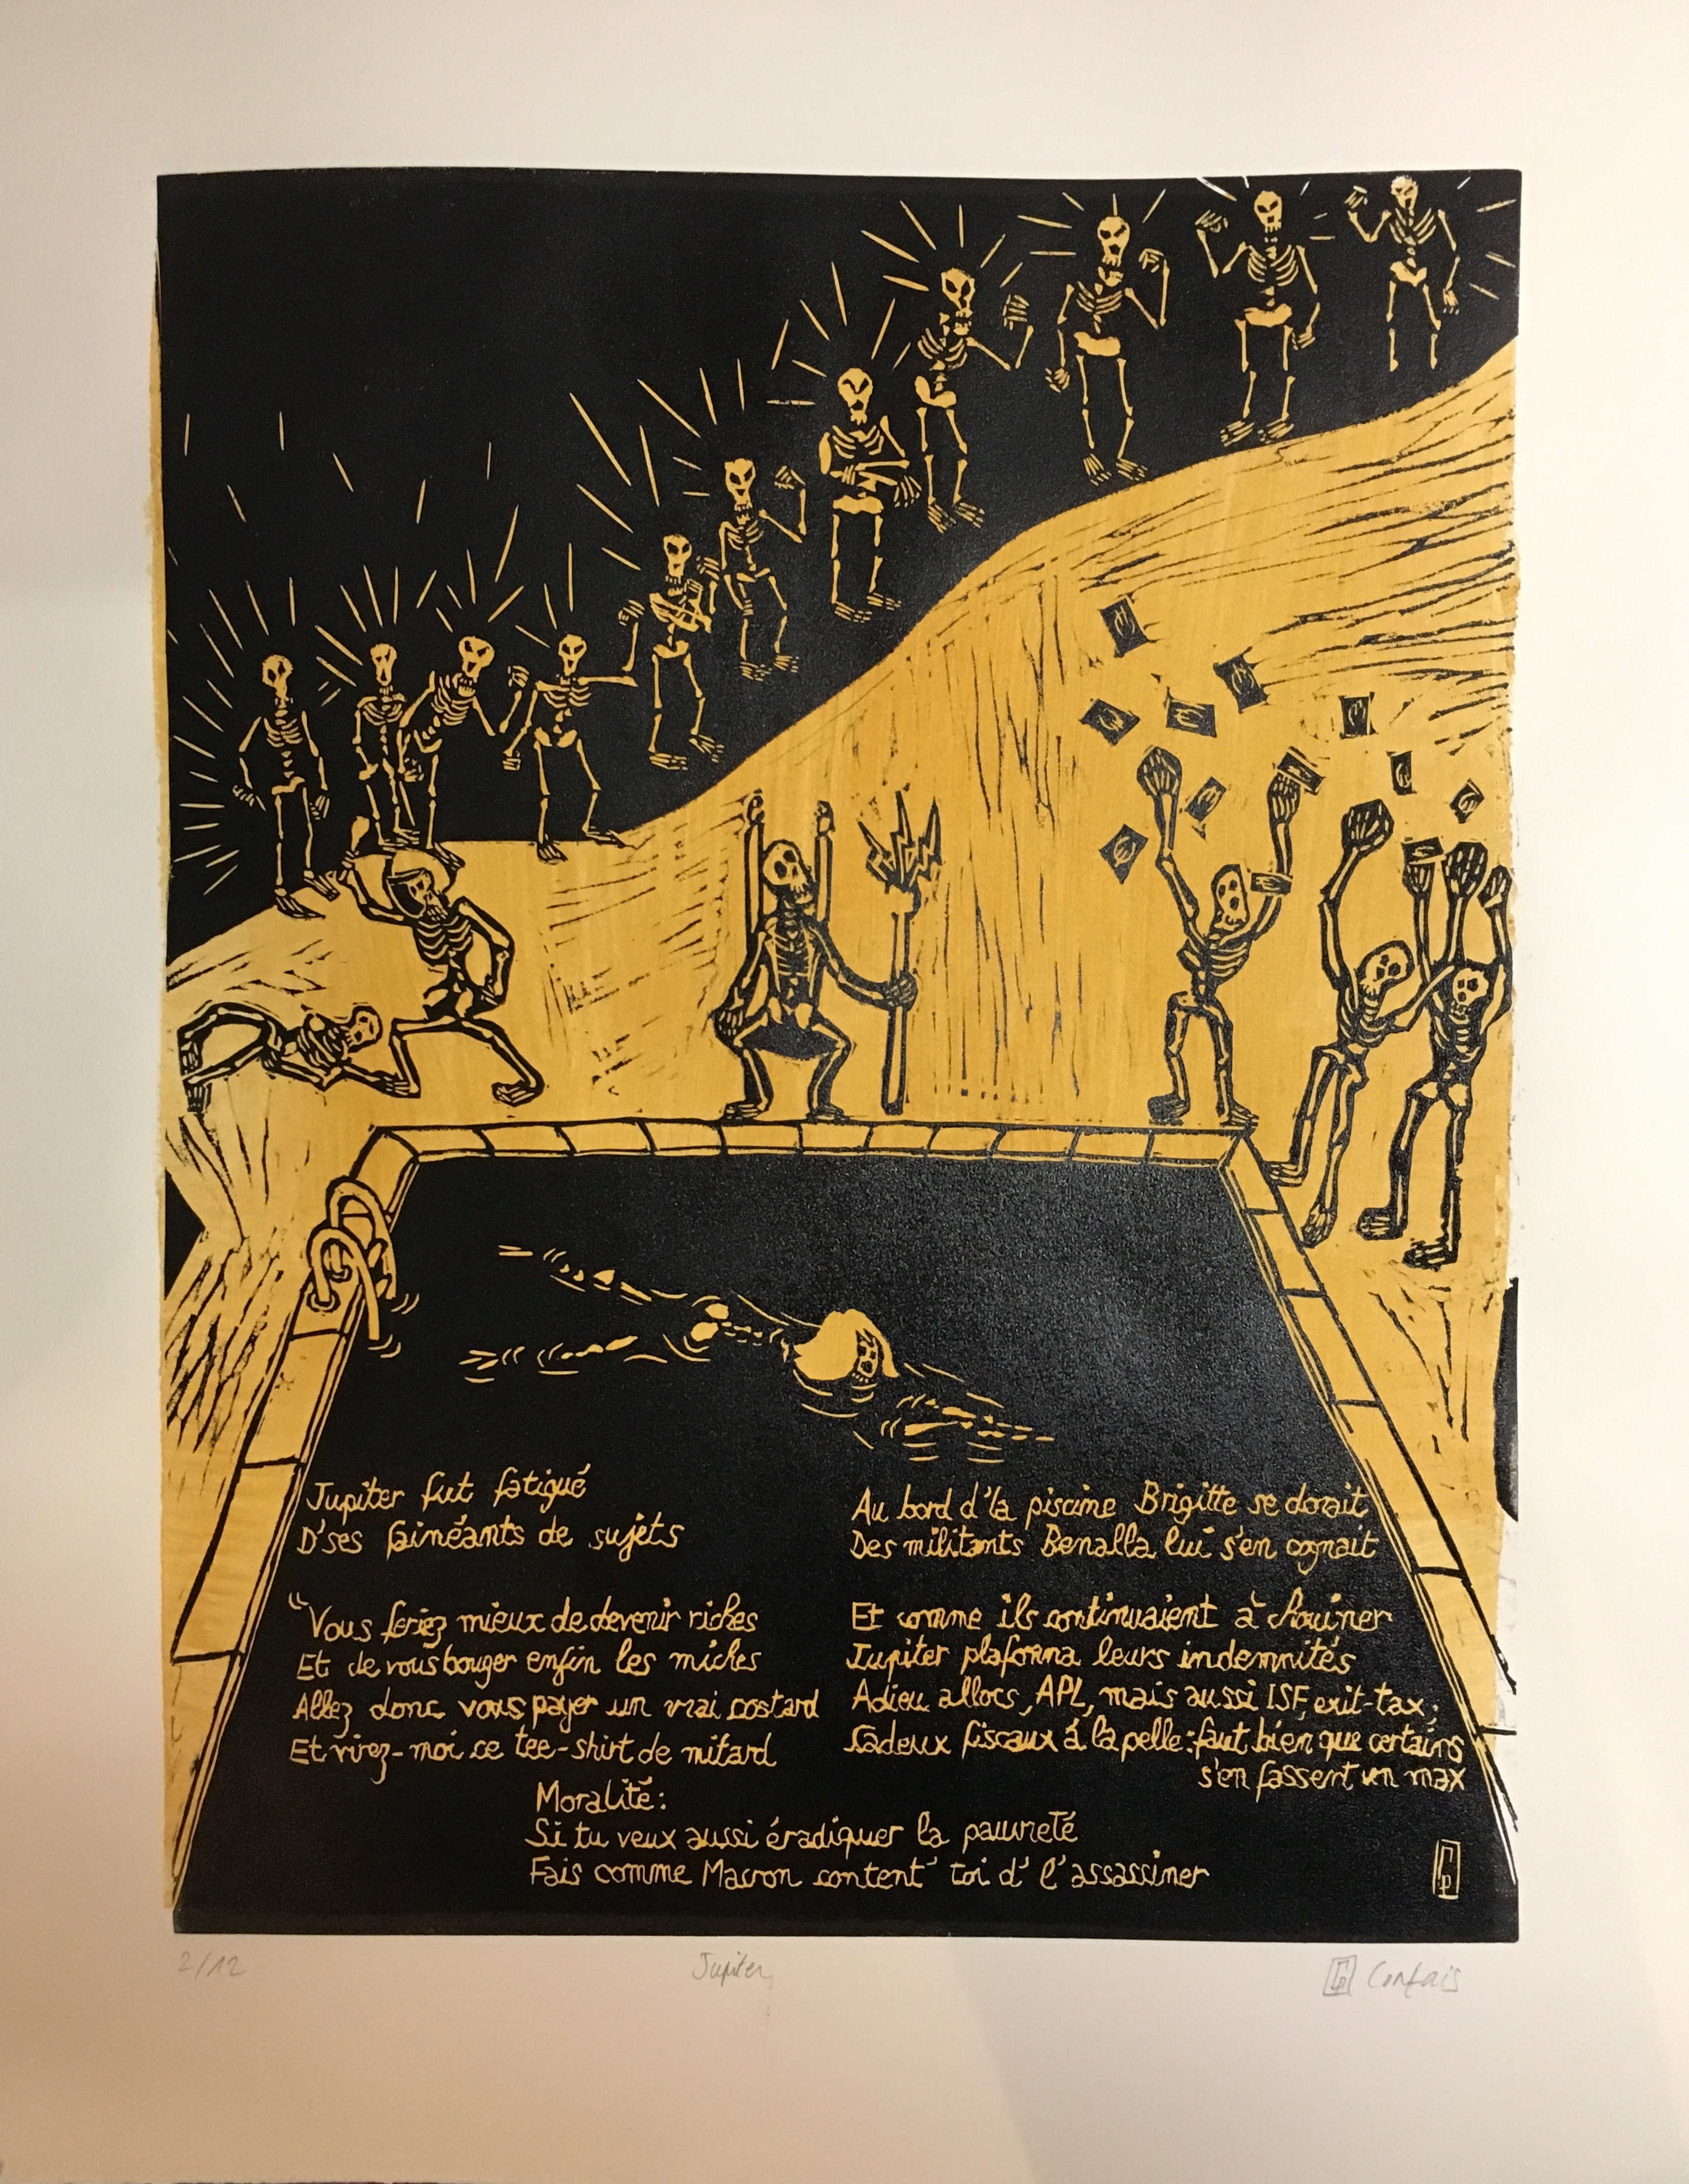 Jupiter fut fatigué
D'ses fainéants de sujets
"Vous feriez mieux de devenir riches
Et de vous bouger enfin les miches
Allez donc vous payer un vrai costard
Et virez-moi ce tee-shirt de mitard
Au bord d'la piscine Brigitte se dorait
Des militants Benalla lui s'en cognait
Et comme ils continuaient à chouiner
Jupiter plafonna leurs indemnités
Adieu allocs, APL, mais aussi ISF, exit-tax;
Cadeux fiscaux à la pelle: faut bien que certains
s'en fassent un max
Moralité:
Si tu veux aussi éradiquer la pauvreté
Fais comme Macron content' toi d' l'assassiner
2/12
Jupiter
Confais